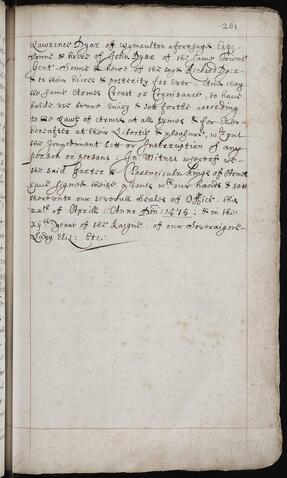 261
Lawrence Dyar of Wymaulton aforesayd Esqr
sonne & heire of John Dyar of the same Towne
Gent: Sonne & heire of the sayd Richard Dyer
& to their heires & posterity for ever: And they
the same Armes Creast or Cognisance, to have
holde use beare Enioy & sett forthe according
to the Laws of Armes at all tymes & for Ever
hereafter at their Libertie & pleasure, wthout
the Impediment Lett or Interruption of any
person or persons: In Witnes whereof we
the said Garter & Clarenciulx Kings of Armes
have signed theise psents wth our hands & sett
therunto our severall Seales of Office: the
of Aprill: Anno Dm: 1575: & in the
yeare of the Raigne of our Soveraigne
Lady Elis: Etc: